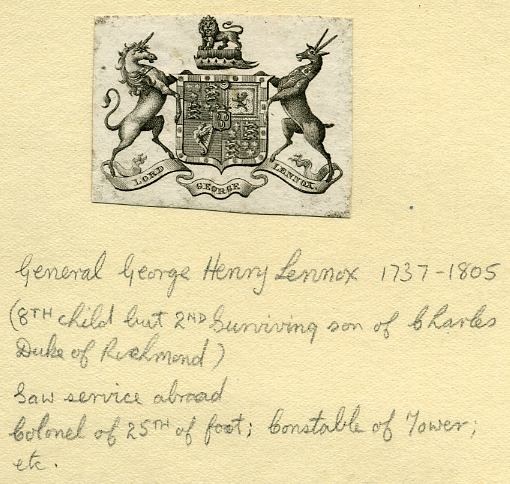 LORD GEORGE LENNOX.
General George Henry Lennox 1737-1805
(8TH child but 2ND Surviving son of Charles
Duke of Richmond)
Saw service abroad
Colonel of 25TH of foot; Constable of Tower;
etc.